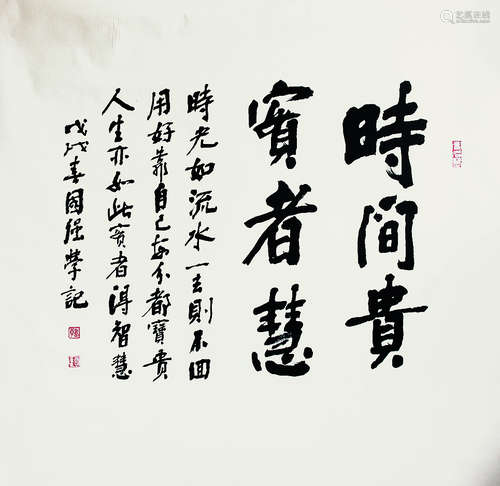 時間貴
賓者慧
時光如流水一去則不回
用好靠自己每分都寶貴
人生亦如此賓者得智慧
戊戌春國强學記